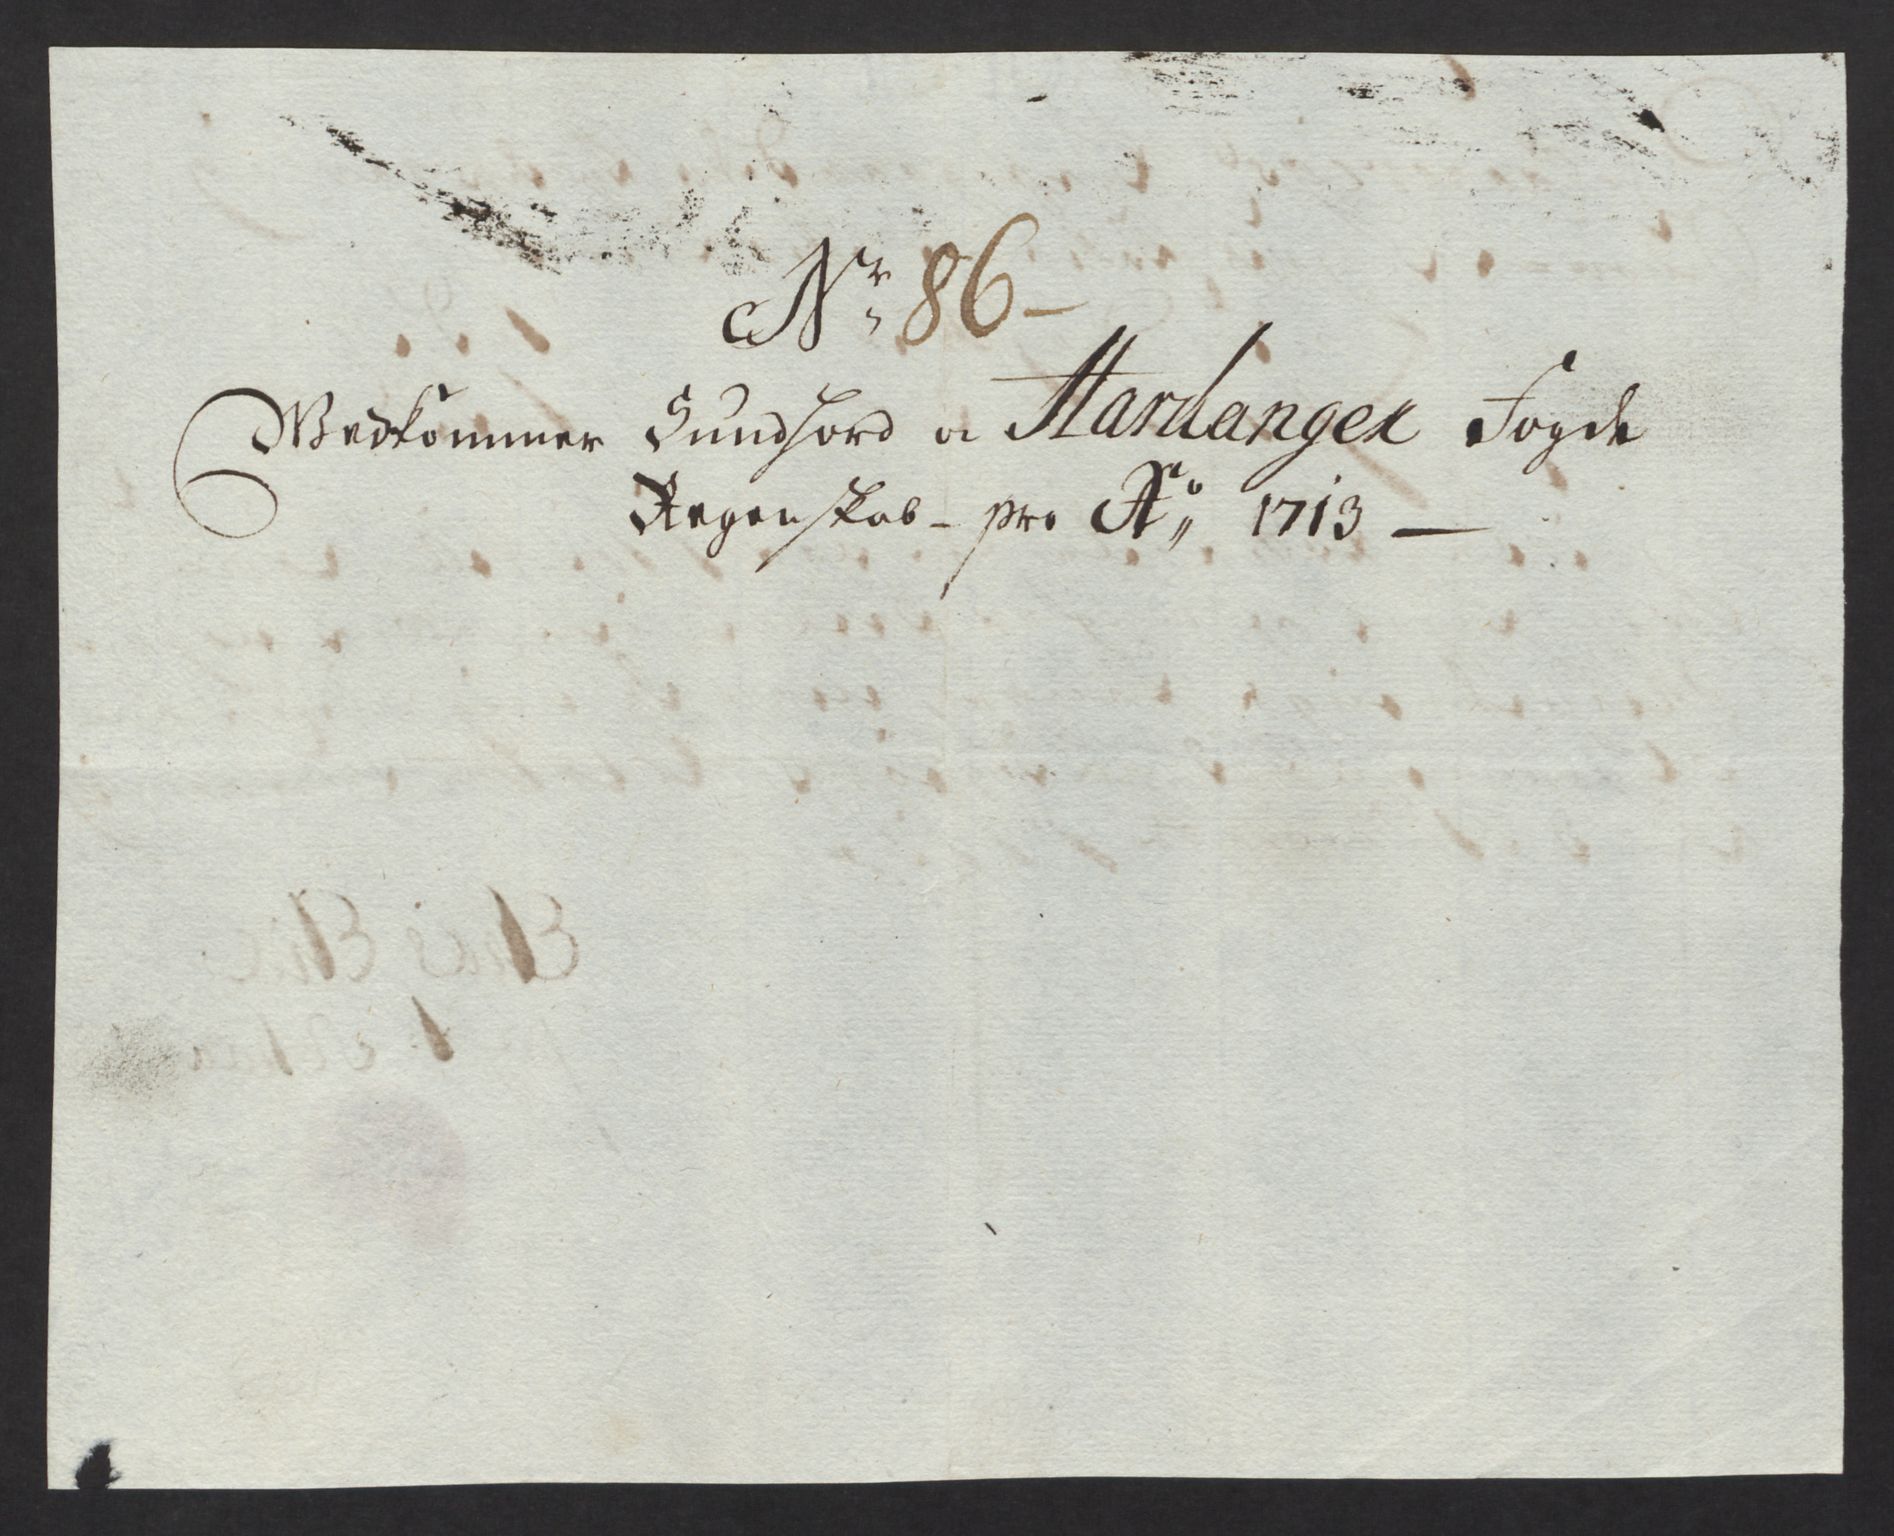 Nr: 86 -
Vedkommer Sundhord oc Hardanger Fogde
Regenskab - pro Ao 1713 -